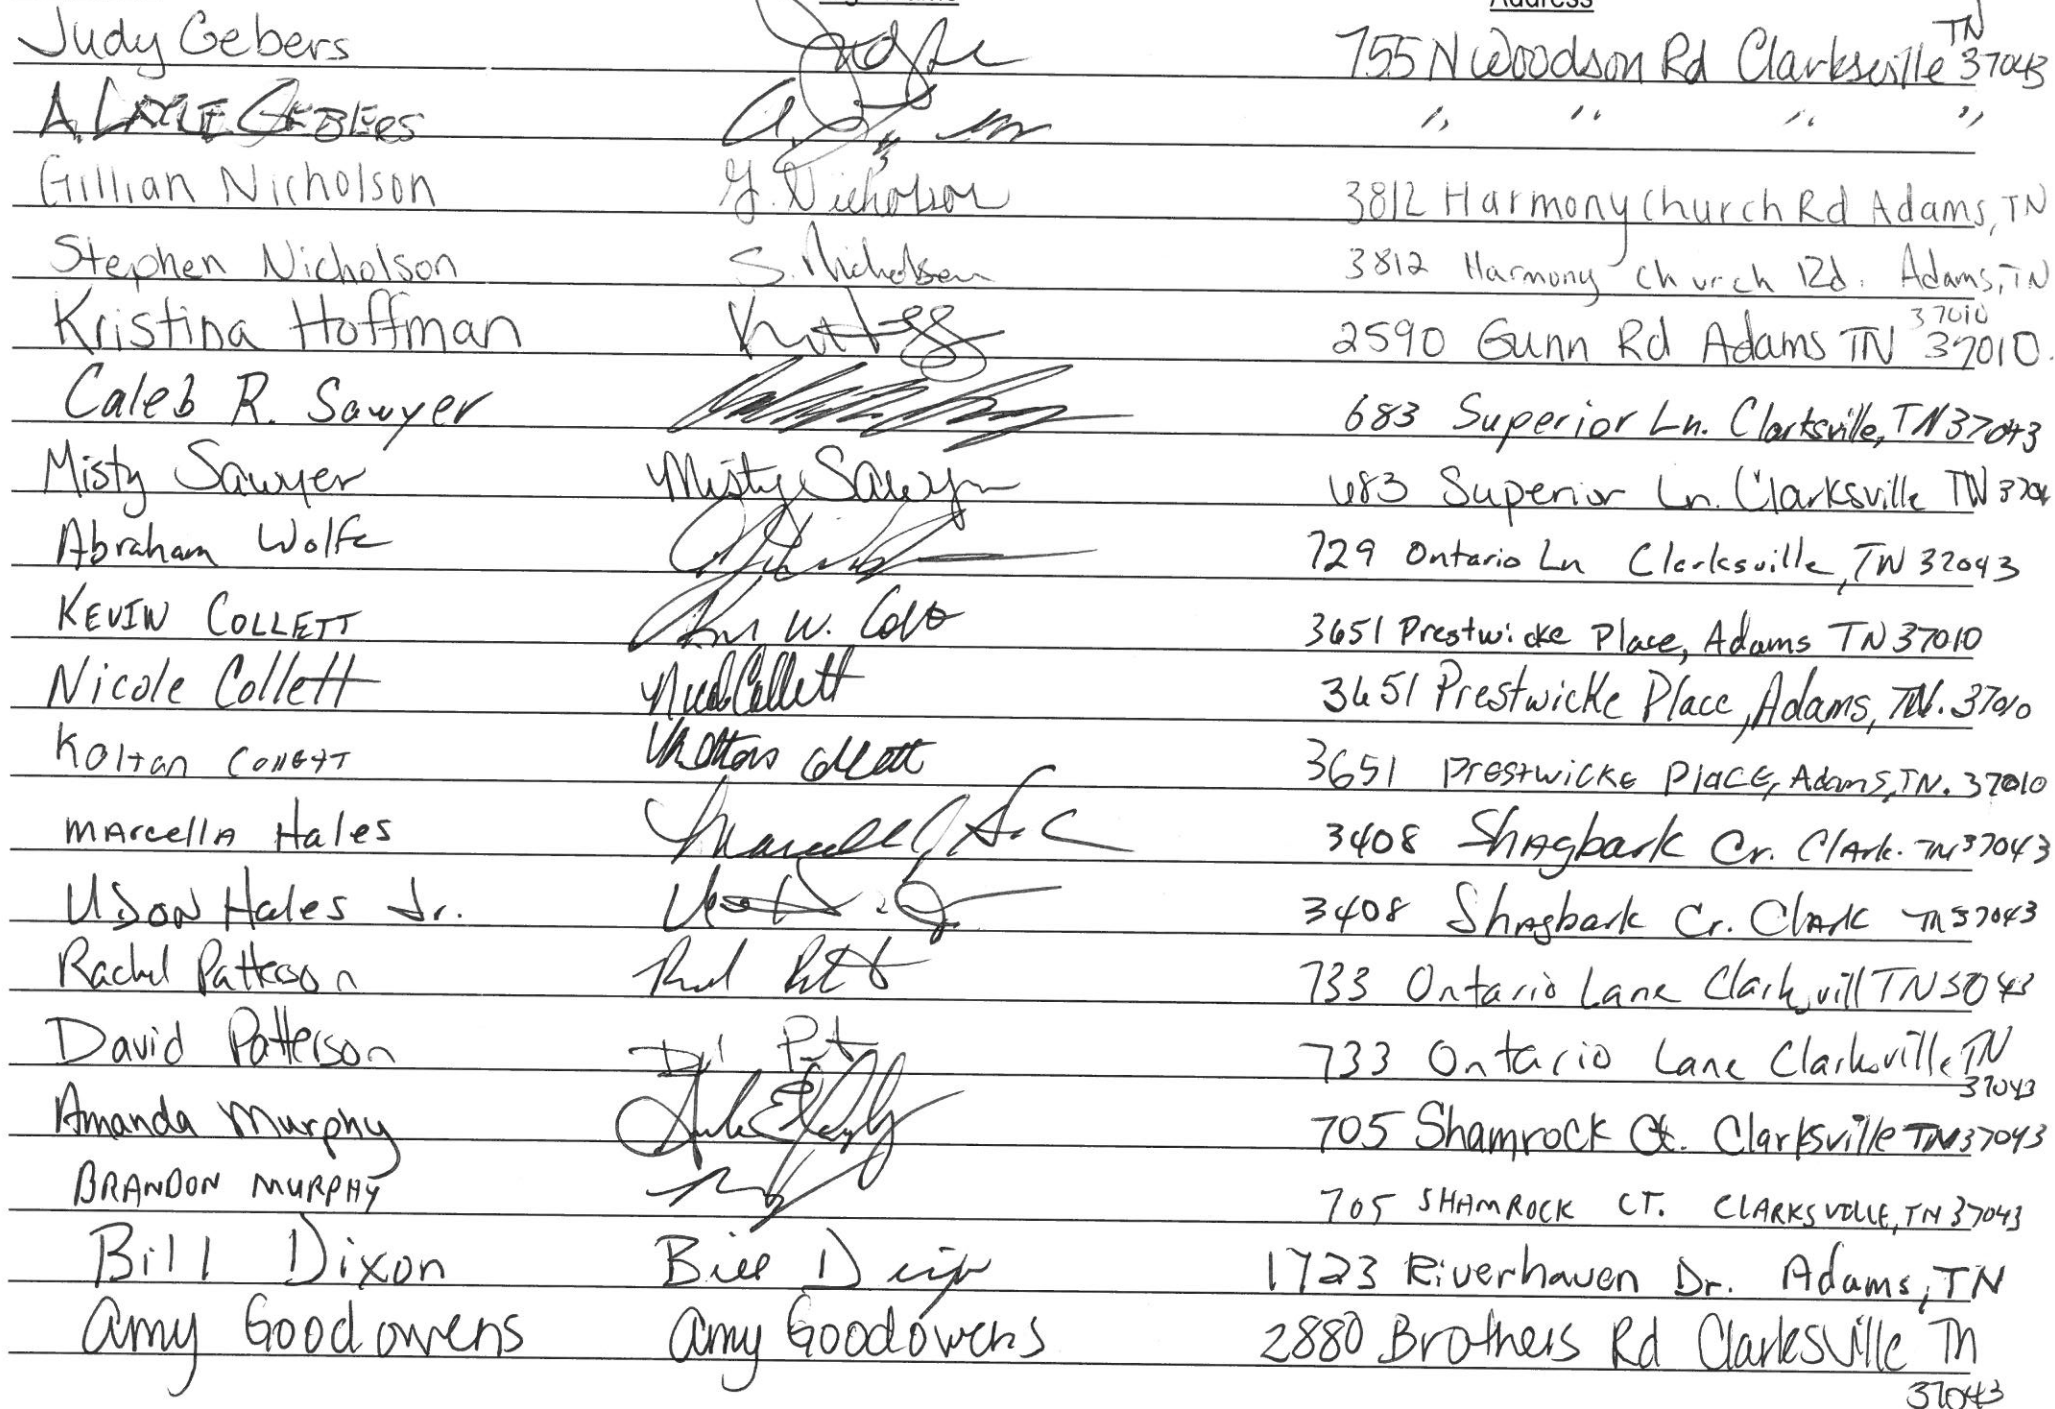 Address
Judy Gebers 755 N Woodson Rd Clarksville TN 37043
A. Gebers " " " "
Gillian Nicholson G. Nicholson 3812 Harmony Church Rd Adams, TN
Stephen Nicholson S. Nicholson 3812 Harmony Church Rd. Adams, TN
37010
Kristina Hoffman 2590 Gunn Rd Adams TN 37010.
Caleb R. Sawyer 683 Superior Ln. Clarksville, TN 37043
Misty Sawyer Misty Sawyer 683 Superior Ln. Clarksville TN 3704
Abraham Wolfe 729 Ontario Ln Clarksville, TN 37043
KEVIN COLLETT W. 3651 Prestwicke Place, Adams TN 37010
Nicole Collett Nicole Collett 3651 Prestwicke Place, Adams, TN. 37010
Koltan Collett Collett 3651 Prestwicke Place, Adams, TN. 37010
Marcella Hales 3408 Shagbark Cr. Clark. TN 37043
Hales Jr. 3408 Shagbark Cr. Clark TN 37043
Rachel Patterson 733 Ontario Lane Clarksvill TN
David Patterson 733 Ontario Lane Clarksville TN
37043
Amanda Murphy 705 Shamrock Ct. Clarksville TN 37043
BRANDON MURPHY 705 SHAMROCK CT. CLARKSVILLE, TN 37043
Bill Dixon Bill Dixon 1723 Riverhaven Dr. Adams, TN
Amy Goodowens Amy Goodowens 2880 Brothers Rd Clarksville Tn
37043